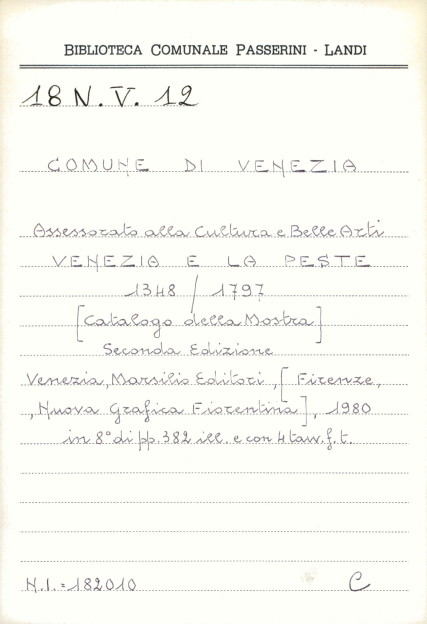 BIBLIOTECA COMUNALE PASSERINI - LANDI
18 N. V. 12
COMUNE DI VENEZIA
Assessorato alla Cultura e Belle Arti
VENEZIA E LA PESTE
1348 / 1797
[Catalogo della Mostra]
Seconda Edizione
Venezia, Marsilio Editori, [Firenze,
, Nuova Grafica Fiorentina], 1980
in 8° di pp. 382 ill. e con 4 tav. f. t.
N.I. = 182010 C